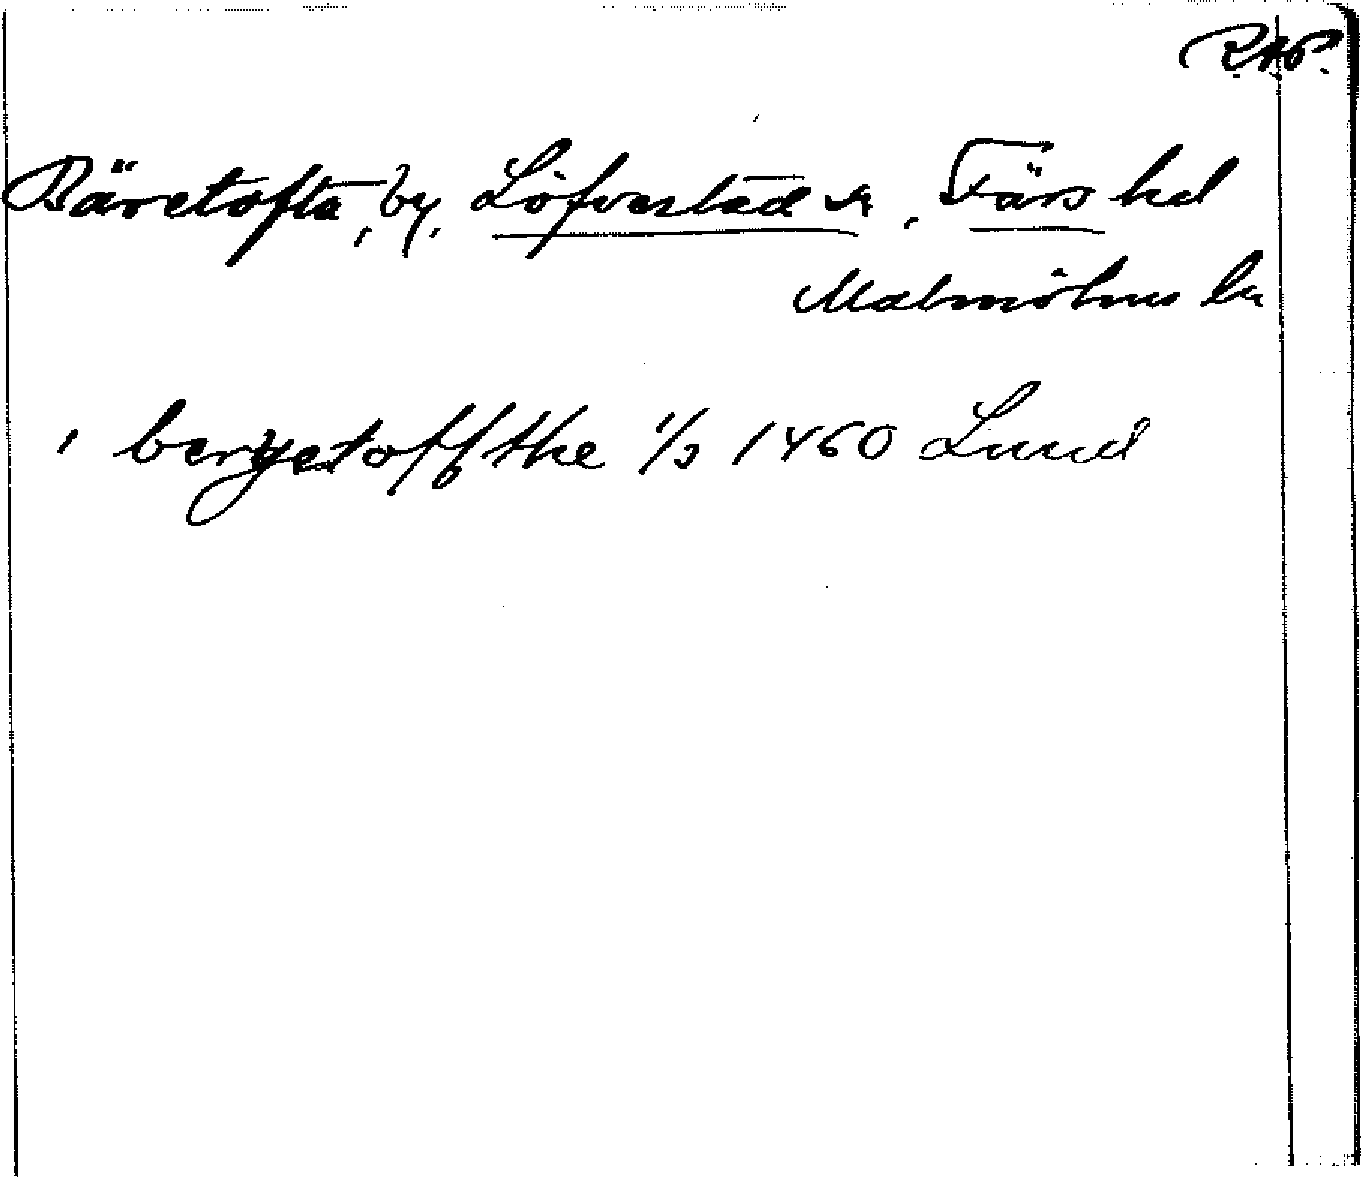 RAP.
Bäretofta, by, Löfvestad sn, Färs hd
Malmöhus ln
i bergetoffthe 1/3 1460 Lund